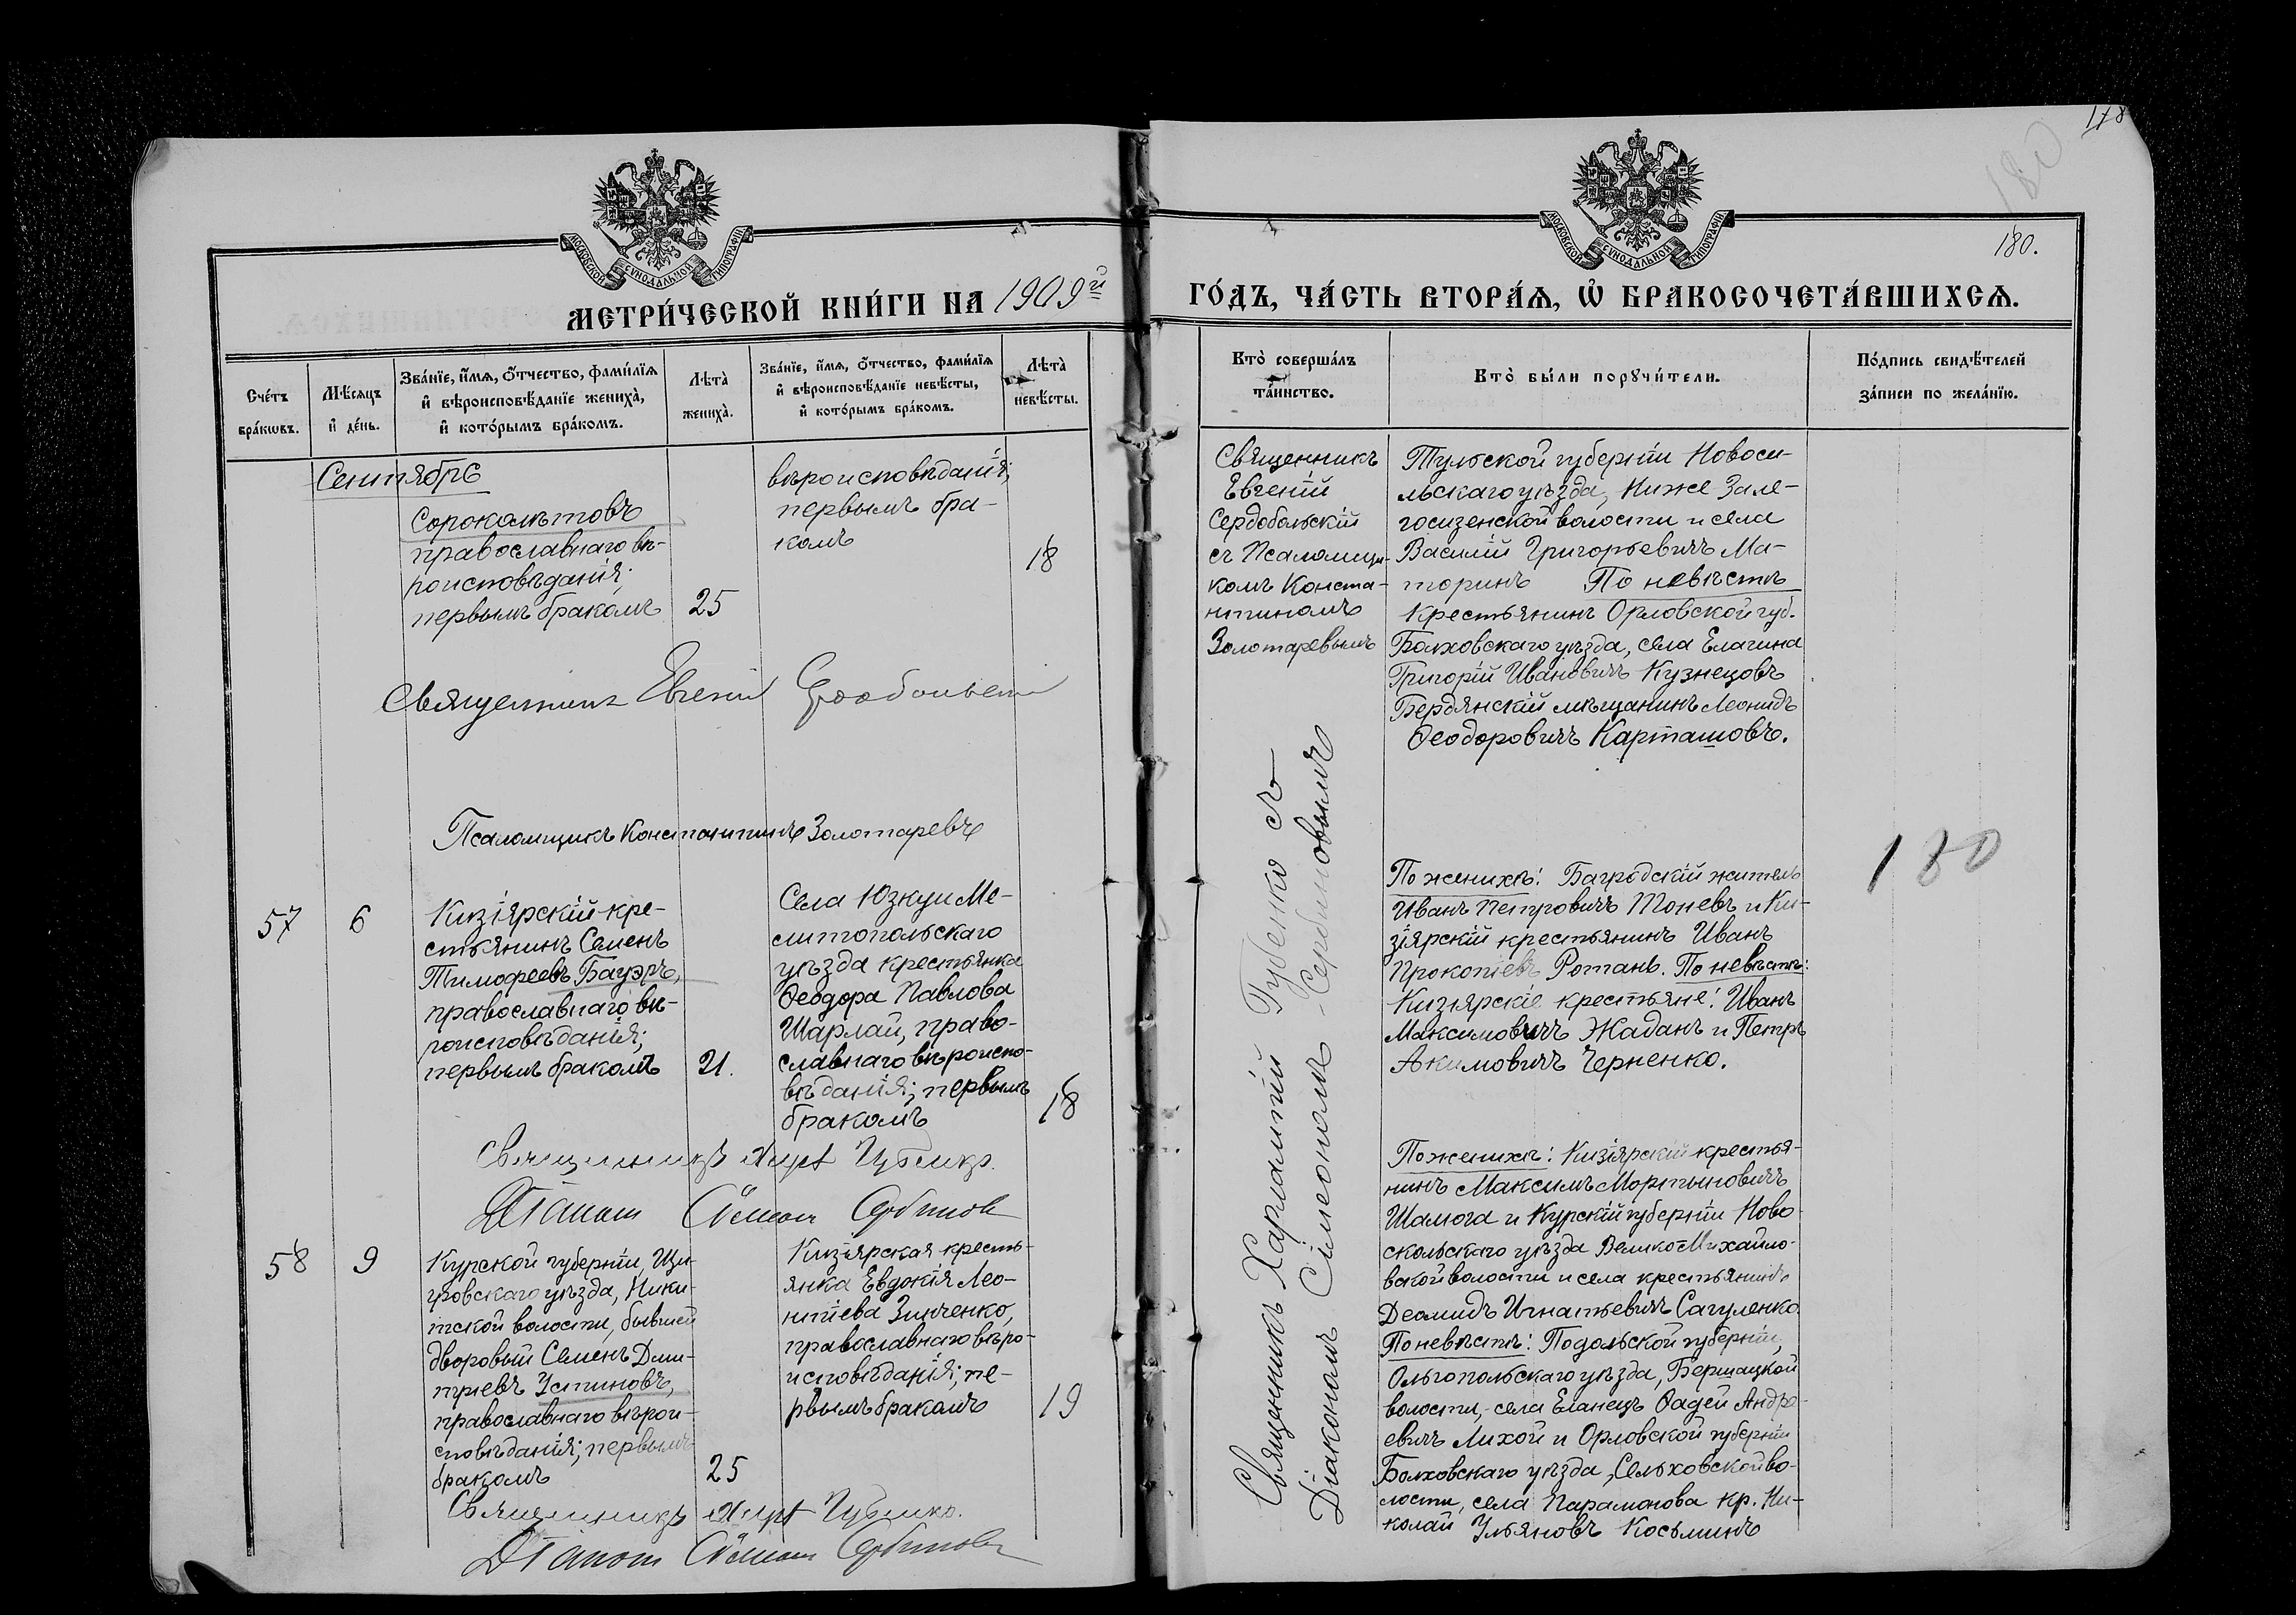 178
180
180.
МОСКОВСКОЙ СѴНОДАЛЬНОЙ ТИПОГРАФІИ
МОСКОВСКОЙ СѴНОДАЛЬНОЙ ТИПОГРАФІИ
МЕТРИ́ЧЕСКОЙ КНИ́ГИ НА 1909й
ГО́ДЪ, ЧА́СТЬ ВТОРА́Ѧ, Ѡ҆ БРАКОСОЧЕТА́ВШИХСѦ.
Сче́тъ
бра́кѡвъ.
Мѣ́сѧцъ
и҆ де́нь.
Зва́нїе, и҆́мѧ, ѻ҆́тчество, фами́лїѧ
и҆ вѣроисповѣ́данїе жениха̀,
и҆ кото́рымъ бра́комъ.
Лѣта̀
жениха̀.
Зва́нїе, и҆́мѧ, ѻ҆́тчество, фами́лїѧ
и҆ вѣроисповѣ́данїе невѣ́сты,
и҆ кото́рымъ бра́комъ.
Лѣта̀
невѣ́сты.
Кто̀ соверша́лъ
та́инство.
Кто̀ бы́ли порꙋчи́тели.
По́дпись свидѣ́телей
за́писи по жела́нїю.
Сентябрь
Сороколѣтовъ
православнаго вѣ-
роисповѣданія;
первымъ бракомъ
25
вѣроисповѣданія;
первымъ бра-
комъ
18
Священникъ
Евгеній
Сердобольскій
съ Псаломщи-
комъ Конста-
нтиномъ
Золотаревымъ
Тульской губерніи Новоси-
льскаго уѣзда, Ниже-Зале-
гощенской волости и села
Василій Григорьевичъ Ма-
торинъ По невѣстѣ
Крестьянинъ Орловской губ.
Болховскаго уѣзда, села Елагина
Григорій Ивановичъ Кузнецовъ
Бердянскій мѣщанинъ Леонидъ
Ѳеодоровичъ Карташовъ.
Священникъ Евгеній Сердобольскій
Псаломщикъ Константинъ Золотаревъ
57
6
Кизіярскій кре-
стьянинъ Семенъ
Тимофеевъ Бауэръ,
православнаго вѣ-
роисповѣданія;
первымъ бракомъ
21.
Села Юзкуи Ме-
литопольскаго
уѣзда крестьянка
Ѳеодора Павлова
Шарлай, право-
славнаго вѣроиспо-
вѣданія; первымъ
бракомъ
18
Священникъ Харлампій Губенко съ
Діакономъ Сімеономъ Сербиновымъ
По женихѣ: Багродскій житель
Иванъ Петровичъ Тоневъ и Ки-
зіярскій крестьянинъ Иванъ
Прокопіевъ Ротань. По невѣстѣ:
Кизіярскіе крестьяне: Иванъ
Максимовичъ Жаданъ и Петръ
Акимовичъ Черненко.
180
Священникъ Харл Губенко.
Діаконъ Сімеонъ Сербиновъ
58
9
Курской губерніи, Щи-
гровскаго уѣзда, Ники-
тской волости, бывшей
дворовый Семенъ Дми-
тріевъ Устиновъ,
православнаго вѣрои-
сповѣданія; первымъ
бракомъ
25
Кизіярская кресть-
янка Евдокія Лео-
нтіева Зинченко,
православнаго вѣро-
исповѣданія; пе-
рвымъ бракомъ
19
По женихѣ: Кизіярскій крестья-
нинъ Максимъ Мартыновичъ
Шамога и Курскій губерніи Ново-
скольскаго уѣзда Велико-Михайло-
вской волости и села крестьянинъ
Деомидъ Игнатьевичъ Сагуленко.
По невѣстѣ: Подольской губерніи,
Ольгопольскаго уѣзда, Бершацкой
волости, села Еланецъ Ѳадей Андре-
евичъ Лихой и Орловской губерніи
Болховскаго уѣзда, Сельховской во-
лости, села Парамонова кр. Ни-
колай Ульяновъ Косьминъ
Священникъ Харл Губенко.
Діаконъ Сімеонъ Сербиновъ